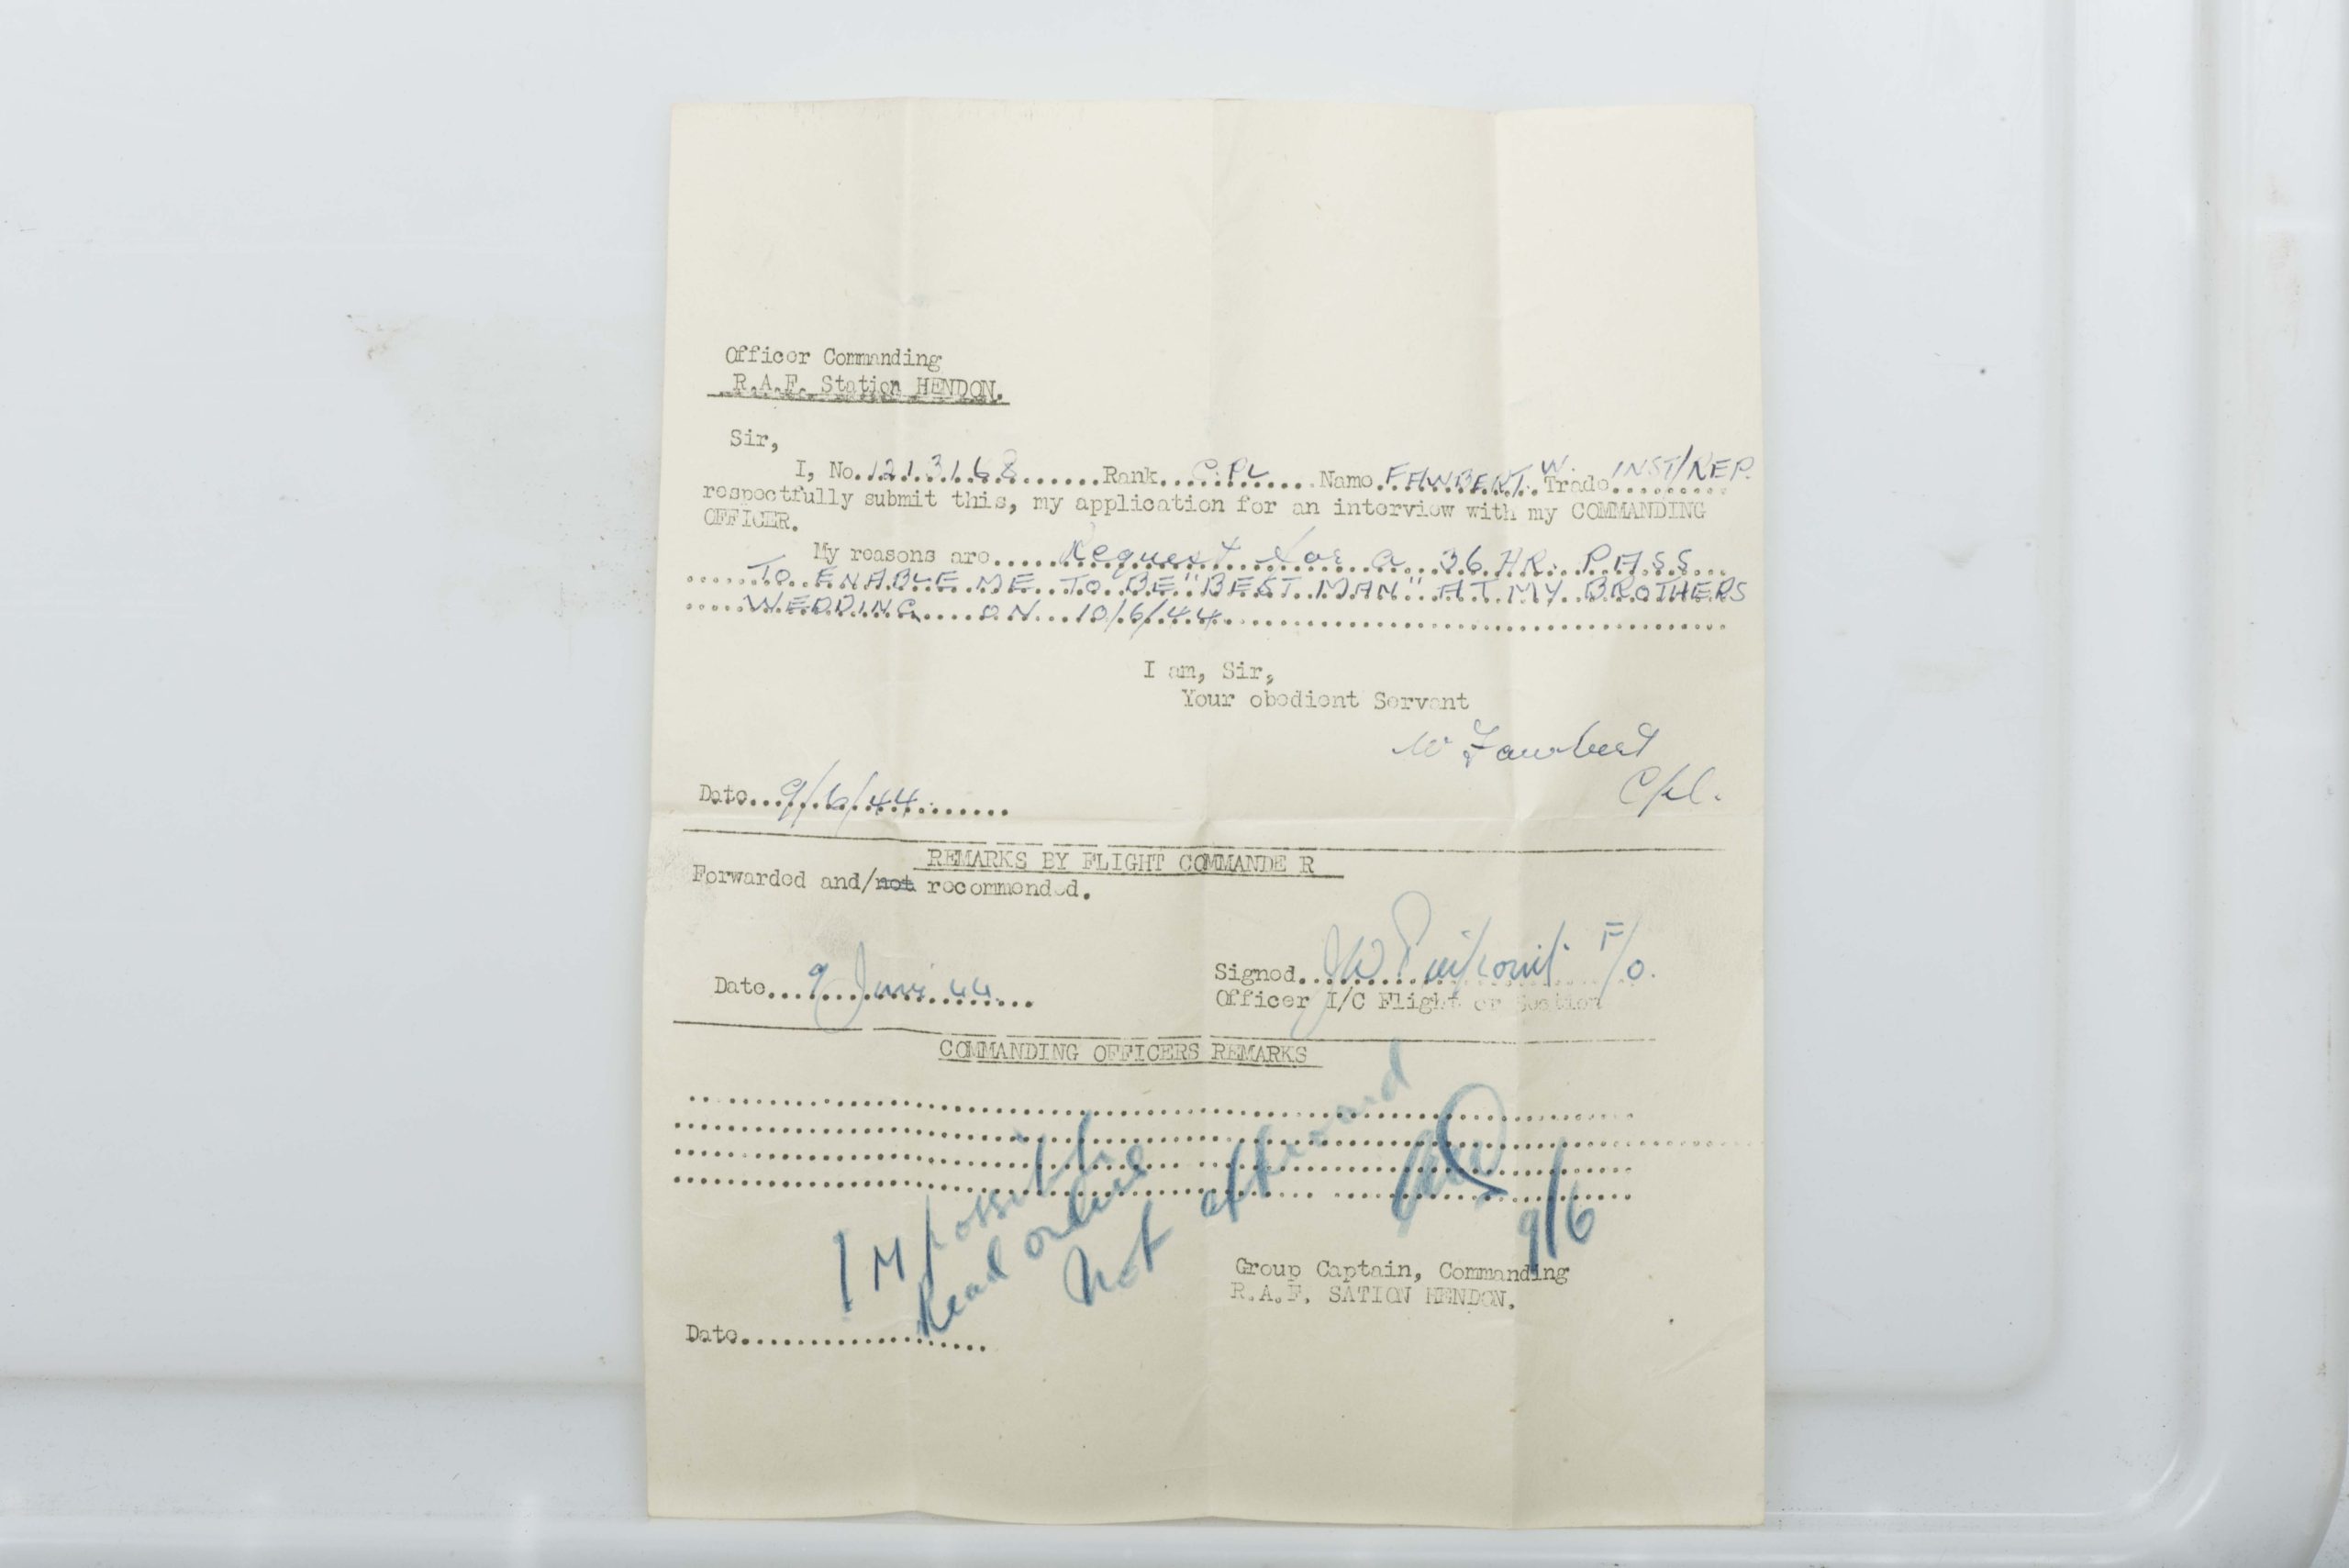 Officer Commanding
R.A.F. Station HENDON.
Sir,
I, No.1213168.......Rank...C.PL.....Name.FAWBERT. W. Trade INST/REP.
respectfully submit this, my application for an interview with my COMMANDING
OFFICER.
My reasons are.....Request for a 36 HR. PASS...
.....TO ENABLE ME TO BE "BEST MAN" AT MY BROTHERS
.....WEDDING ON 10/6/44.....
I am, Sir,
Your obedient Servant
W Fawbert
Cpl.
Date...9/6/44........
REMARKS BY FLIGHT COMMANDE R
Forwarded and/not recommended.
Signed... F/O.
Date...9 June 44....
Officer I/C Flight or Section
COMMANDING OFFICERS REMARKS
Impossible
Read orders
Not afterward
9/6
Group Captain, Commanding
R.A.F. SATION HENDON.
Date.....................